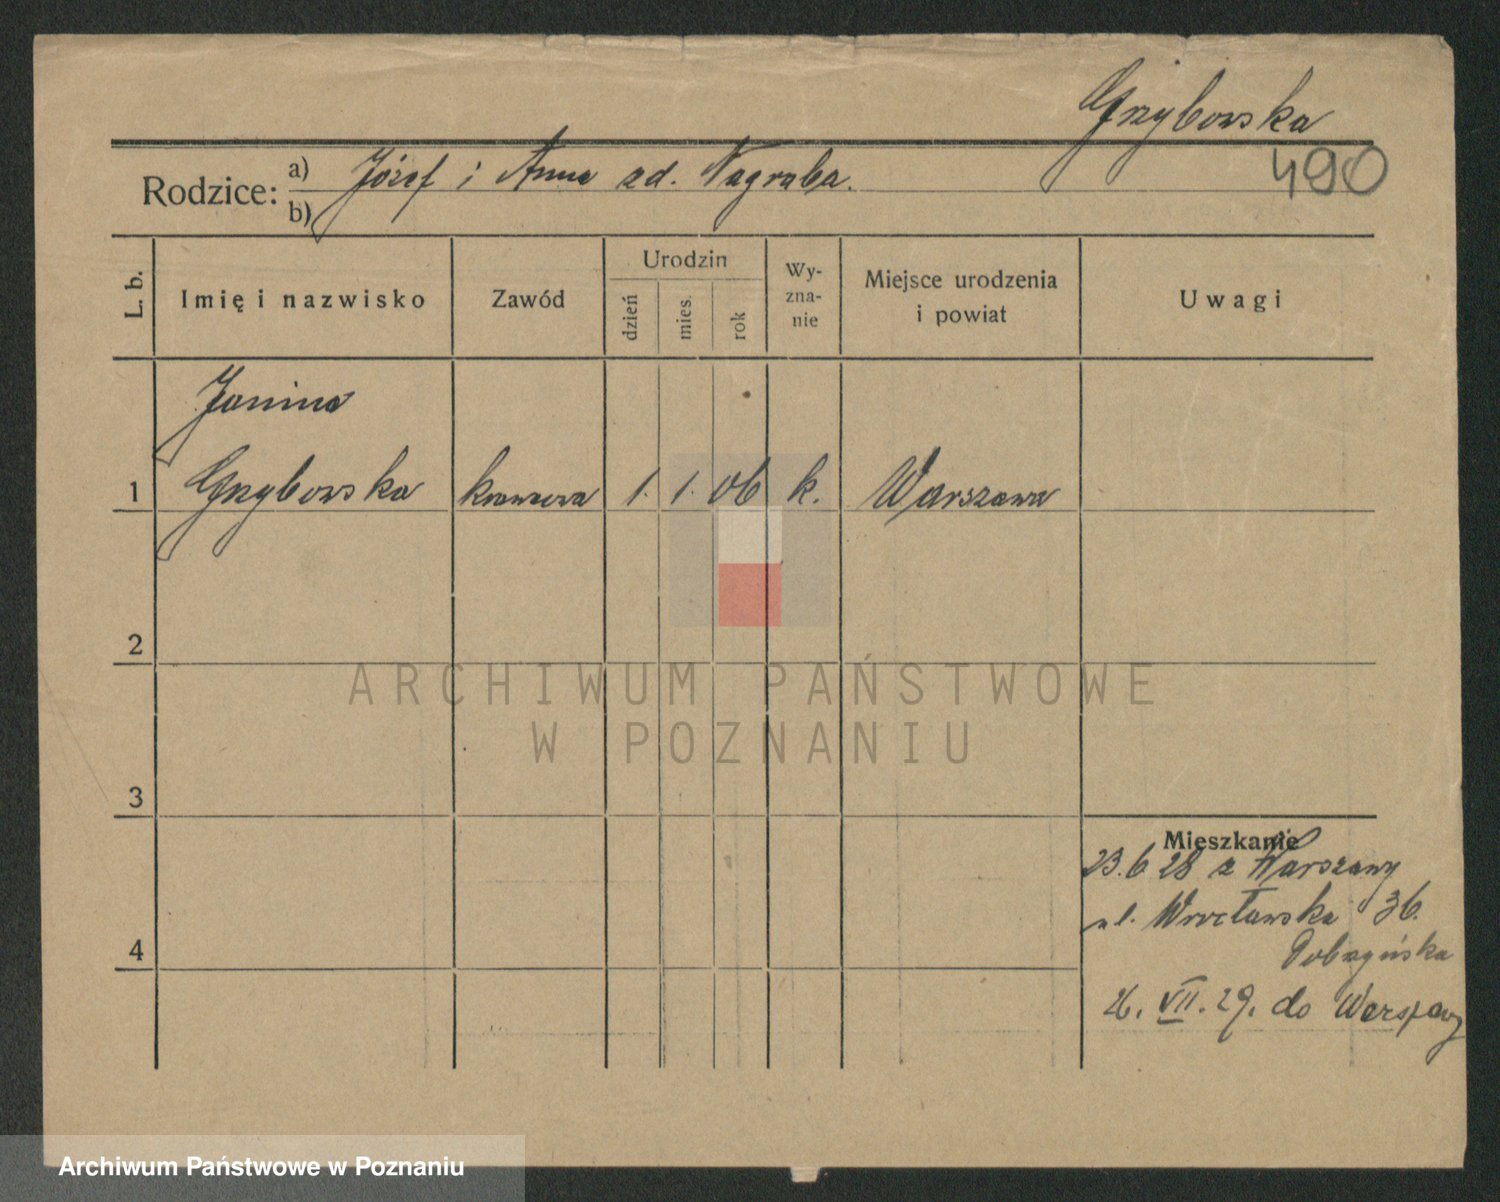 Grzybowska
490
Rodzice:
a) Józef i Anna zd. Nagraba.
b)
L. b.
Imię i nazwisko
Zawód
Urodzin
dzień
mies.
rok
Wy-
zna-
nie
Miejsce urodzenia
i powiat
Uwagi
Janina
1 Grzybowska krawcowa 1. 1. 06 k. Warszawa
2
3
4
Mieszkanie
23.6 28 z Warszawy
ul. Wrocławska 36.
Dobrzyńska
26. VII. 29. do Warszawy
ARCHIWUM PAŃSTWOWE
W POZNANIU
Archiwum Państwowe w Poznaniu